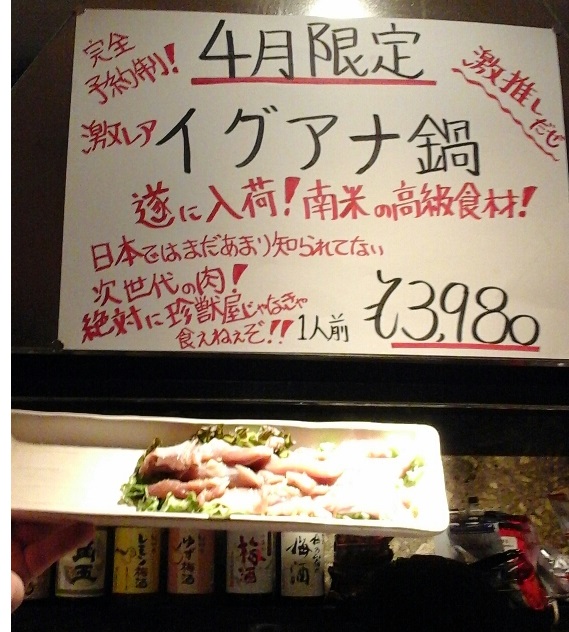 完全
予約制!
4月限定
激推しだぜ
激レア
イグアナ鍋
遂に入荷!南米の高級食材!
日本ではまだあまり知られてない
次世代の肉!
絶対に珍獣屋じゃなきゃ
食えねぇぞ!!
1人前 ¥3,980
梅酒
ゆず梅酒
梅酒
梅酒